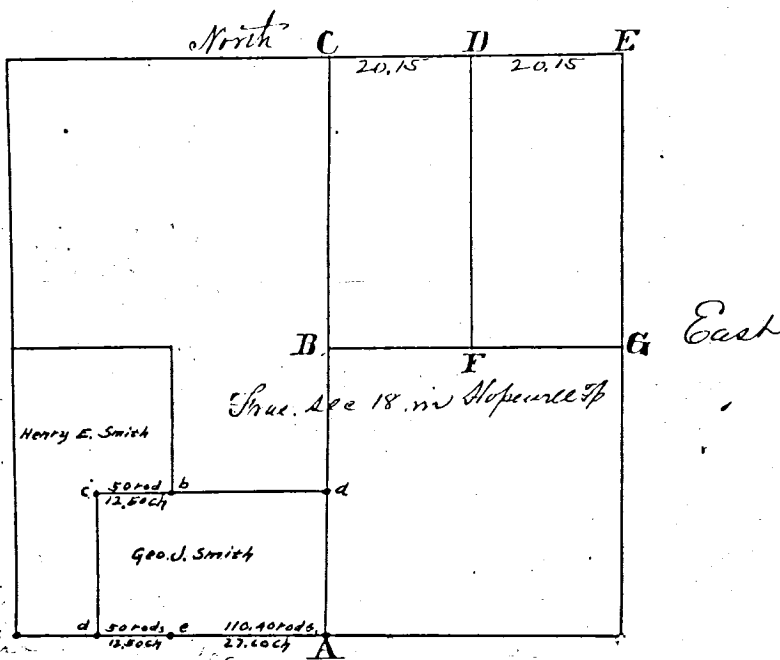 North C D E
20.15 20.15
East
B F G
Sec 18 in Hopewell Tp
Henry E. Smith
c 50 rod b d
12.50 ch
Geo. J. Smith
d 50 rods e 110.40 rods A
12.50 ch 27.60 ch